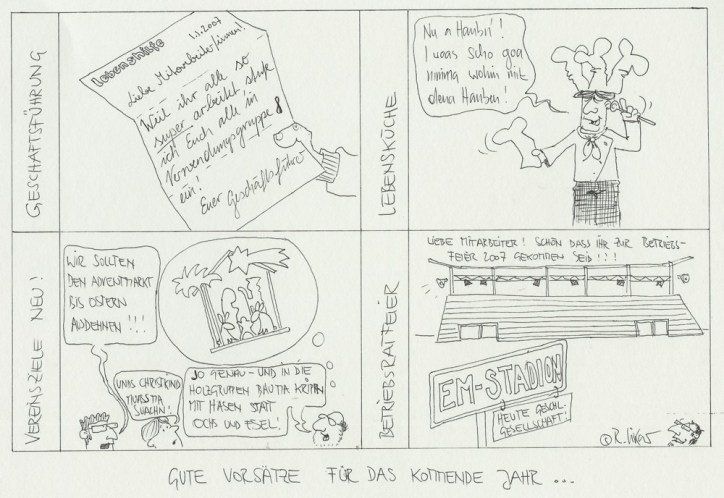 GESCHÄFTSFÜHRUNG
lebenshilfe 1.1.2007
Liebe Mitarbeiter/innen!
Weil ihr alle so
super arbeitet stufe
ich Euch alle in
Verwendungsgruppe 8
ein!
Euer Geschäftsführer
LEBENSKÜCHE
Nu a Haubn!!
I waas scho goa
nimma wohin mit
dena Hauben!
VEREINSZIELE NEU!
WIR SOLLTEN
DEN ADVENTMARKT
BIS OSTERN
AUSDEHNEN!!!
UNDS CHRISTKIND
MUASS MA
SUACHN!
JO GENAU - UND IN DIE
HOLZGRUPPEN BAUMA KRIPPN
MIT HASEN STATT
OCHS UND ESEL!
BETRIEBSRATFEIER
LIEBE MITARBEITER! SCHÖN DASS IHR ZUR BETRIEBS-
FEIER 2007 GEKOMMEN SEID!!!
EM-STADION
HEUTE GESCHL.
GESELLSCHAFT!
GUTE VORSÄTZE FÜR DAS KOMMENDE JAHR ...